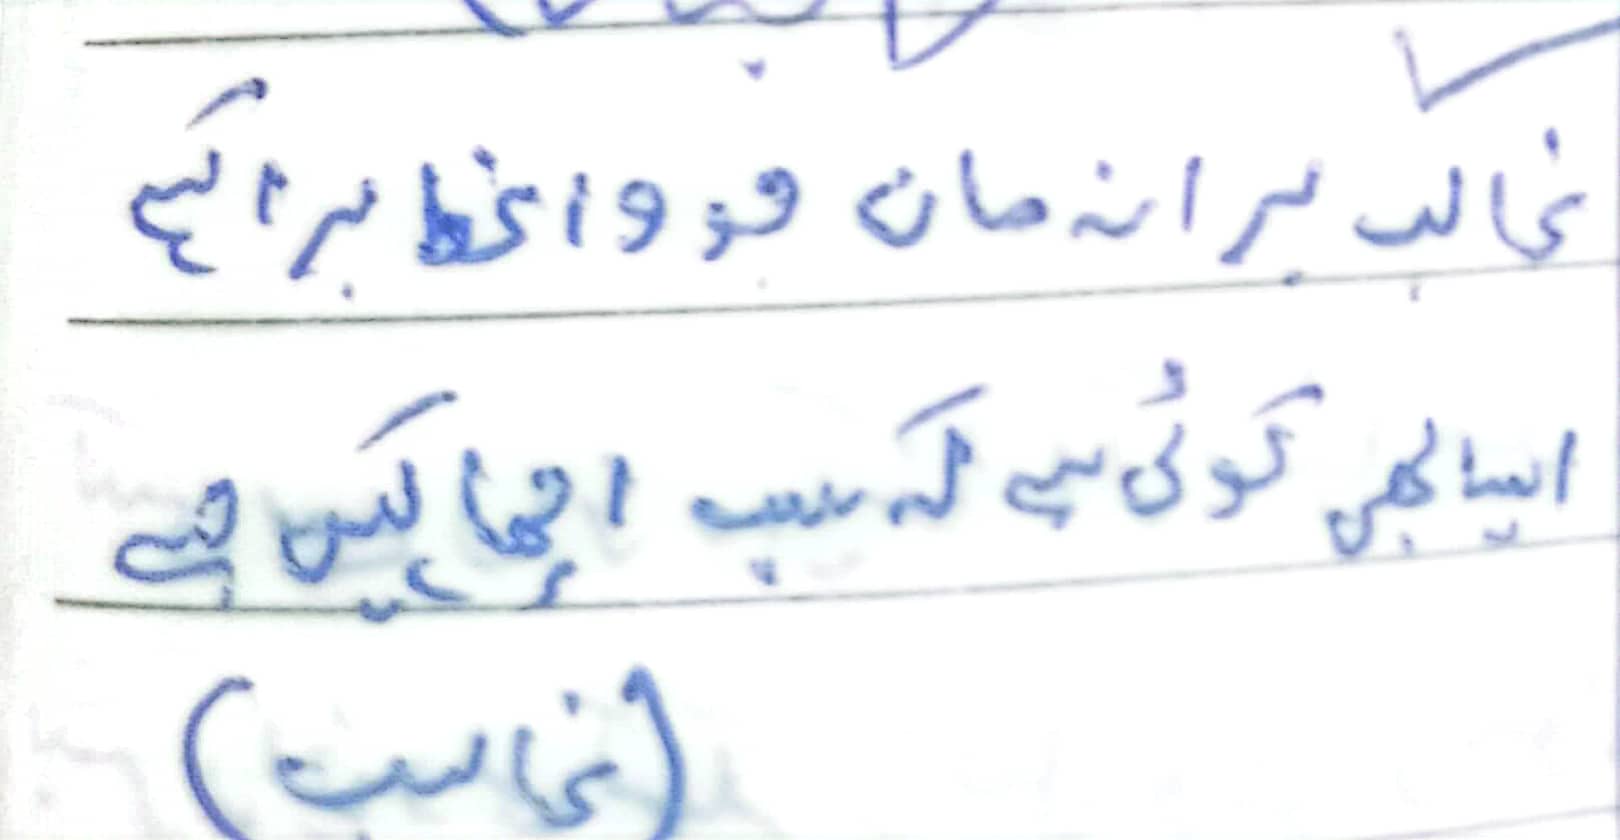 غالب برا نہ مان جو واعظ برا کہے
ایسا بھی کوئی ہے کہ سب اچھا کہیں جسے
(غالب)